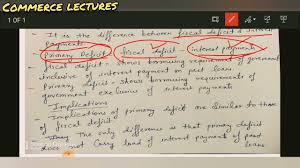 COMMERCE LECTURES
1 OF 1
It is the difference between fiscal deficit & interest
payments
Primary Deficit fiscal deficit - interest payments
fiscal deficit = shows borrowing requirement of government
inclusive of interest payment on past loans
Primary deficit = shows borrowing requirements of
government exclusive of interest payments
Implications
Implications of primary deficit are similar to those
of fiscal deficit
The only difference is that primary deficit
does not carry load of interest payment of past
loans